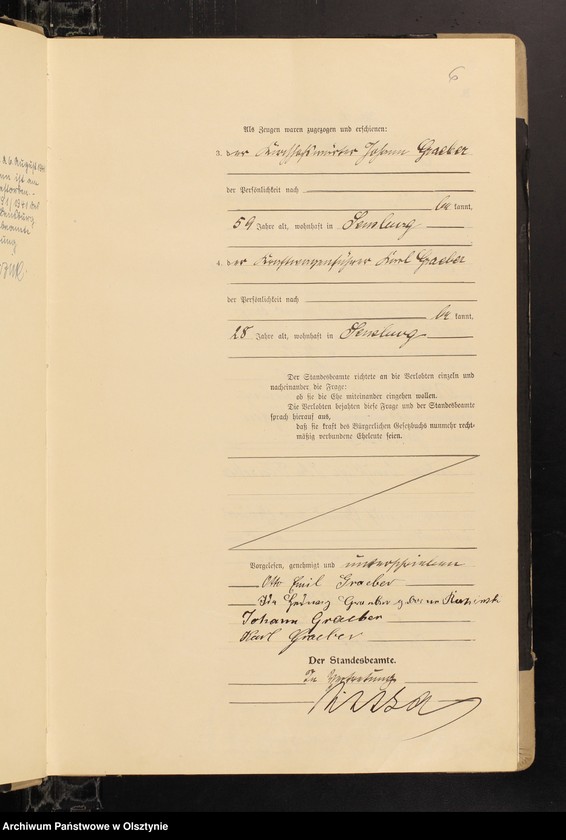 6
Als Zeugen waren zugezogen und erschienen:
3. der Kirchhofswärter Johann Graeber
der Persönlichkeit nach
be kannt,
59 Jahre alt, wohnhaft in Sensburg
4. der Kraftwagenführer Karl Graeber
der Persönlichkeit nach
be kannt,
28 Jahre alt, wohnhaft in Sensburg
Der Standesbeamte richtete an die Verlobten einzeln und
nacheinander die Frage:
ob sie die Ehe miteinander eingehen wollen.
Die Verlobten bejahten diese Frage und der Standesbeamte
sprach hierauf aus,
daß sie kraft des Bürgerlichen Gesetzbuchs nunmehr recht-
mäßig verbundene Eheleute seien.
Vorgelesen, genehmigt und unterschrieben
Otto Emil Graeber
Ida Hedwig Graeber geborene
Johann Graeber
Karl Graeber
Der Standesbeamte.
In Vertretung
Archiwum Państwowe w Olsztynie